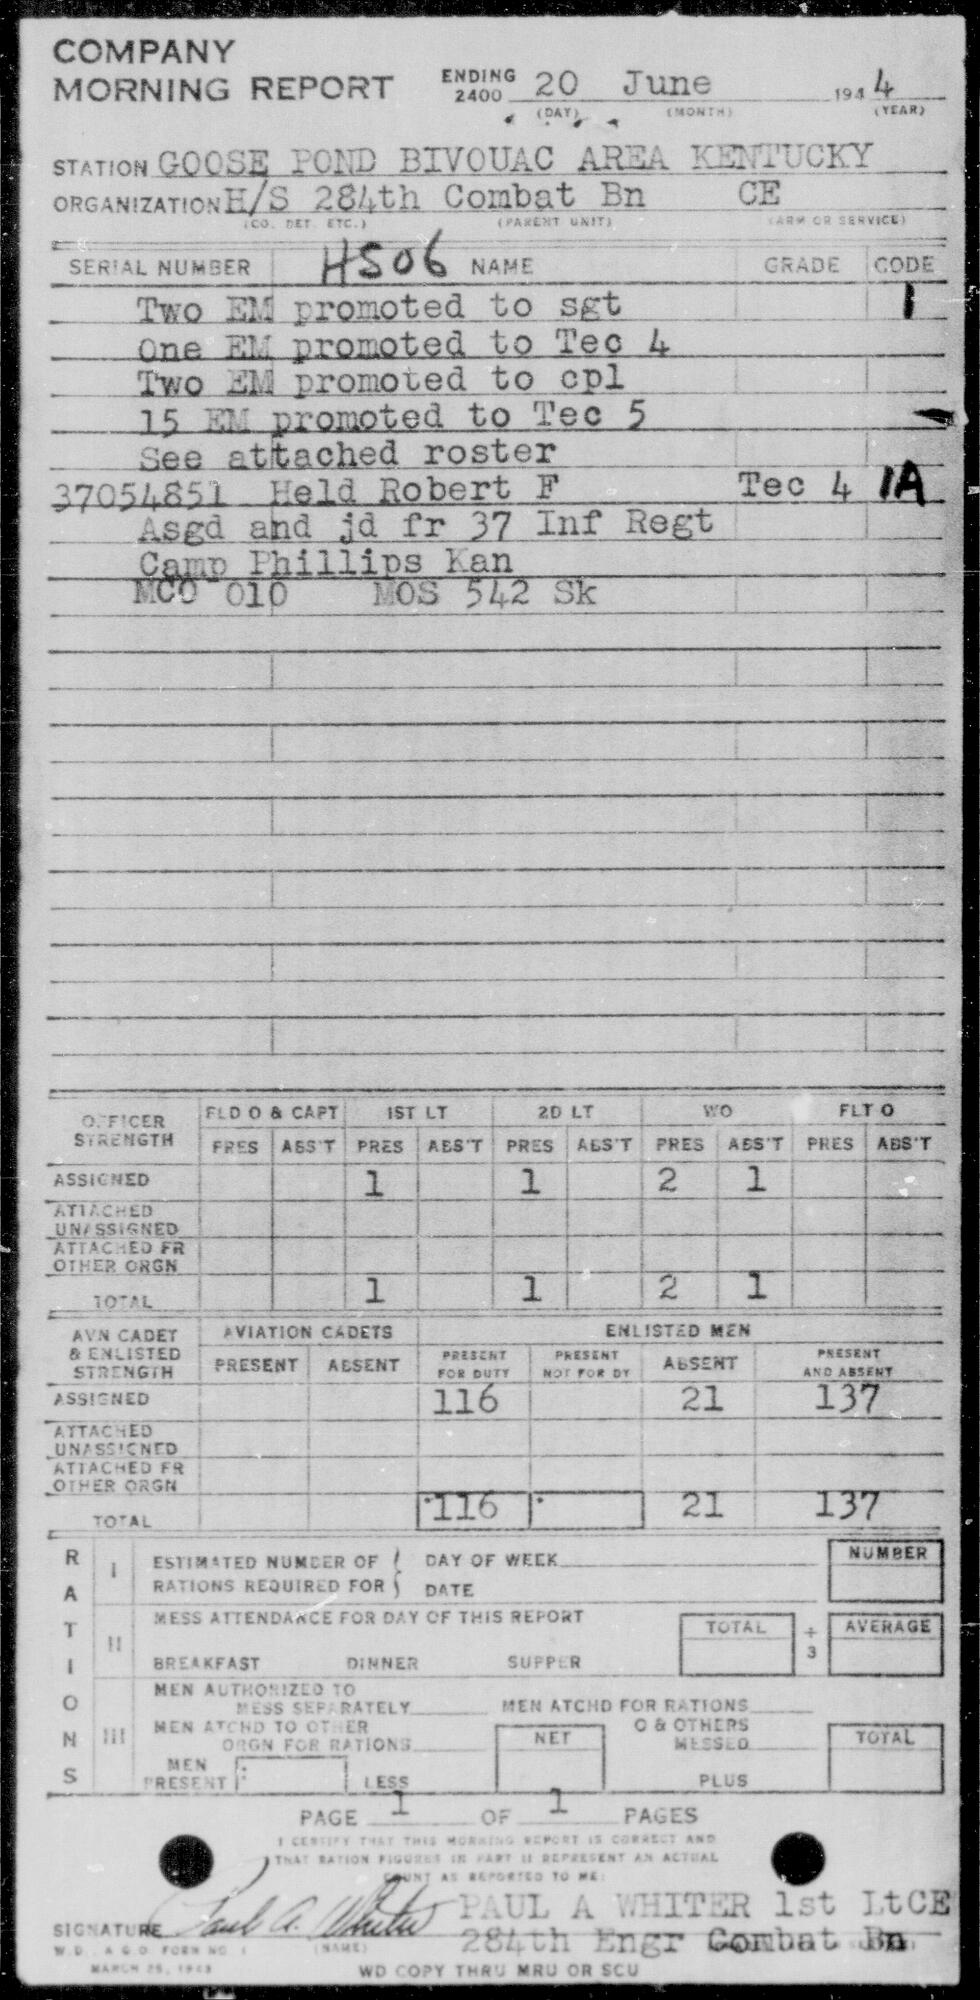 COMPANY
MORNING REPORT ENDING 2400 20 June 1944
(DAY) (MONTH) (YEAR)
STATION GOOSE POND BIVOUAC AREA KENTUCKY
ORGANIZATION H/S 284th Combat Bn CE
(CO. DET. ETC.) (PARENT UNIT) (ARM OR SERVICE)
SERIAL NUMBER HS06 NAME GRADE CODE
Two EM promoted to sgt 1
One EM promoted to Tec 4
Two EM promoted to cpl
15 EM promoted to Tec 5
See attached roster
37054851 Held Robert F Tec 4 1A
Asgd and jd fr 37 Inf Regt
Camp Phillips Kan
MCO 010 MOS 542 Sk
OFFICER STRENGTH FLD O & CAPT 1ST LT 2D LT WO FLT O
PRES ABS'T PRES ABS'T PRES ABS'T PRES ABS'T PRES ABS'T
ASSIGNED 1 1 2 1
ATTACHED UNASSIGNED
ATTACHED FR OTHER ORGN
TOTAL 1 1 2 1
AVN CADET & ENLISTED STRENGTH AVIATION CADETS ENLISTED MEN
PRESENT ABSENT PRESENT FOR DUTY PRESENT NOT FOR DY ABSENT PRESENT AND ABSENT
ASSIGNED 116 21 137
ATTACHED UNASSIGNED
ATTACHED FR OTHER ORGN
TOTAL 116 21 137
RATIONS
I ESTIMATED NUMBER OF RATIONS REQUIRED FOR DAY OF WEEK NUMBER
DATE
II MESS ATTENDANCE FOR DAY OF THIS REPORT TOTAL ÷ 3 AVERAGE
BREAKFAST DINNER SUPPER
III MEN AUTHORIZED TO MESS SEPARATELY MEN ATCHD FOR RATIONS
MEN ATCHD TO OTHER ORGN FOR RATIONS NET O & OTHERS MESSED TOTAL
MEN PRESENT LESS PLUS
PAGE 1 OF 1 PAGES
I CERTIFY THAT THIS MORNING REPORT IS CORRECT AND
THAT RATION FIGURES IN PART II REPRESENT AN ACTUAL
COUNT AS REPORTED TO ME:
SIGNATURE Paul A. Whiter PAUL A WHITER 1st Lt CE
(NAME) 284th Engr Combat Bn
W.D., A.G.O. FORM NO. 1
MARCH 25, 1943 WD COPY THRU MRU OR SCU